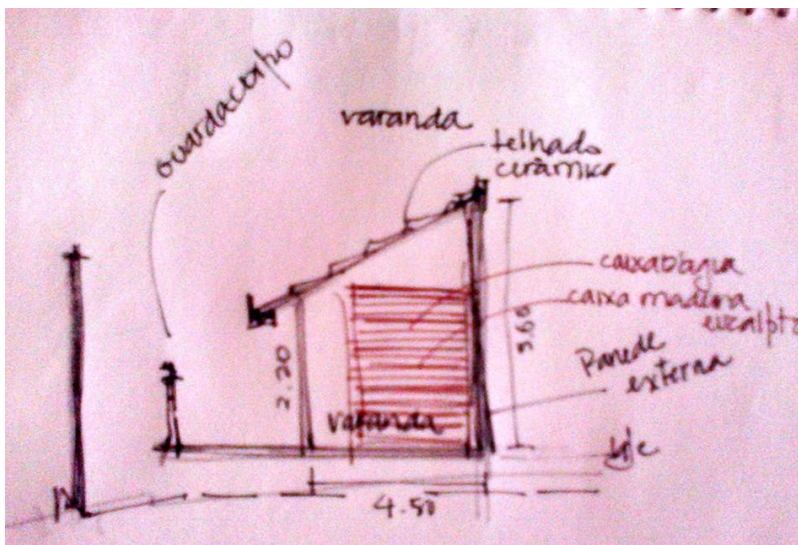 guardacorpo
varanda
telhado
cerâmico
caixad'água
caixa madeira
eucalipto
Parede
externa
3.60
2.20
varanda
laje
4.50